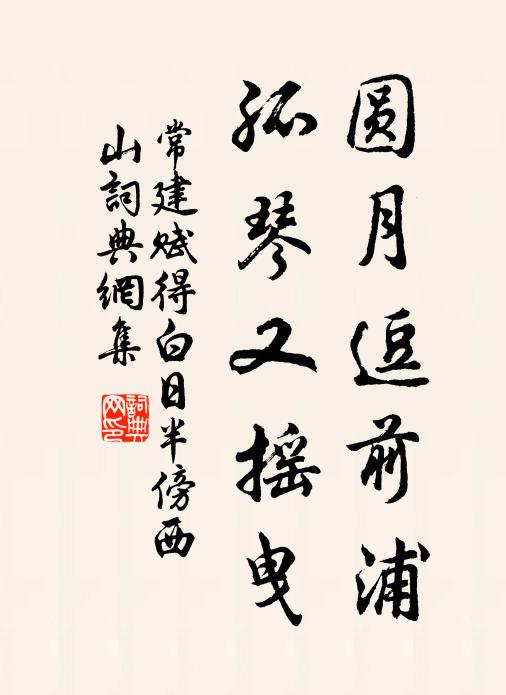 圆月逗前浦
孤琴又摇曳
常建赋得白日半傍西
山詞典網集
詞典
网印